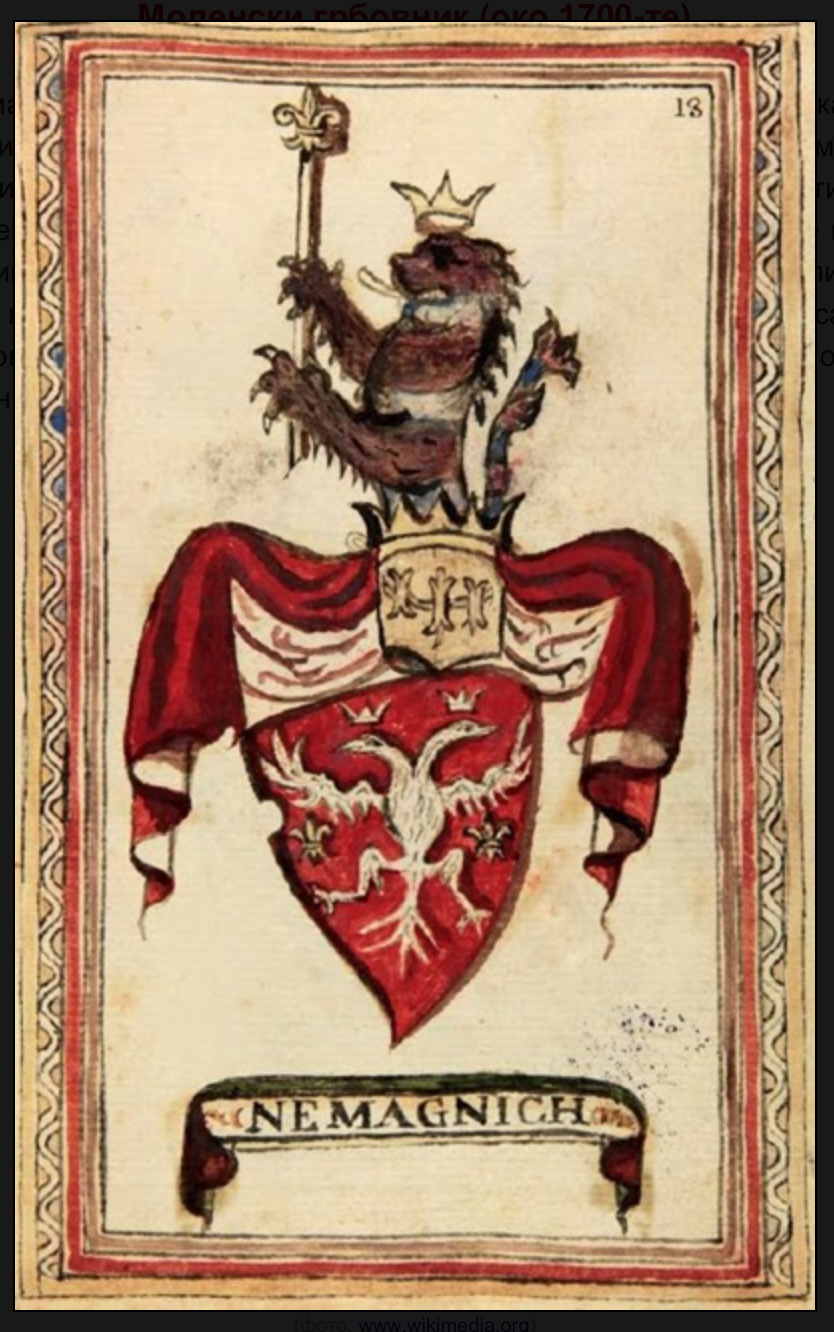 Моденски грбовник (око 1700-те)
18
NEMAGNICH
(фото: www.wikimedia.org)